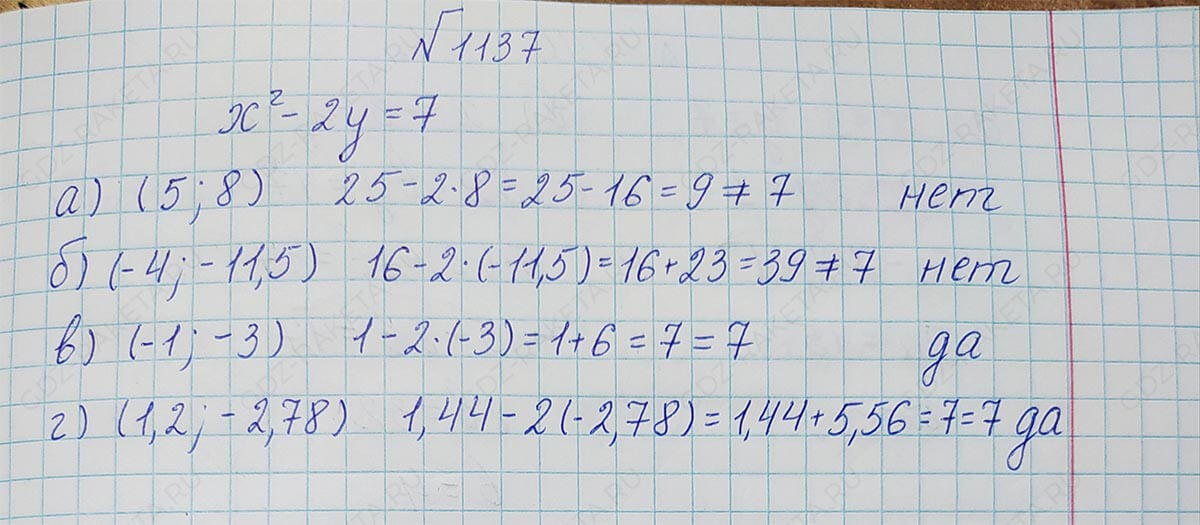 №1137
x² - 2y = 7
а) (5; 8) 25 - 2·8 = 25 - 16 = 9 ≠ 7 нет
б) (-4; -11,5) 16 - 2·(-11,5) = 16 + 23 = 39 ≠ 7 нет
в) (-1; -3) 1 - 2·(-3) = 1 + 6 = 7 = 7 да
г) (1,2; -2,78) 1,44 - 2(-2,78) = 1,44 + 5,56 = 7 = 7 да